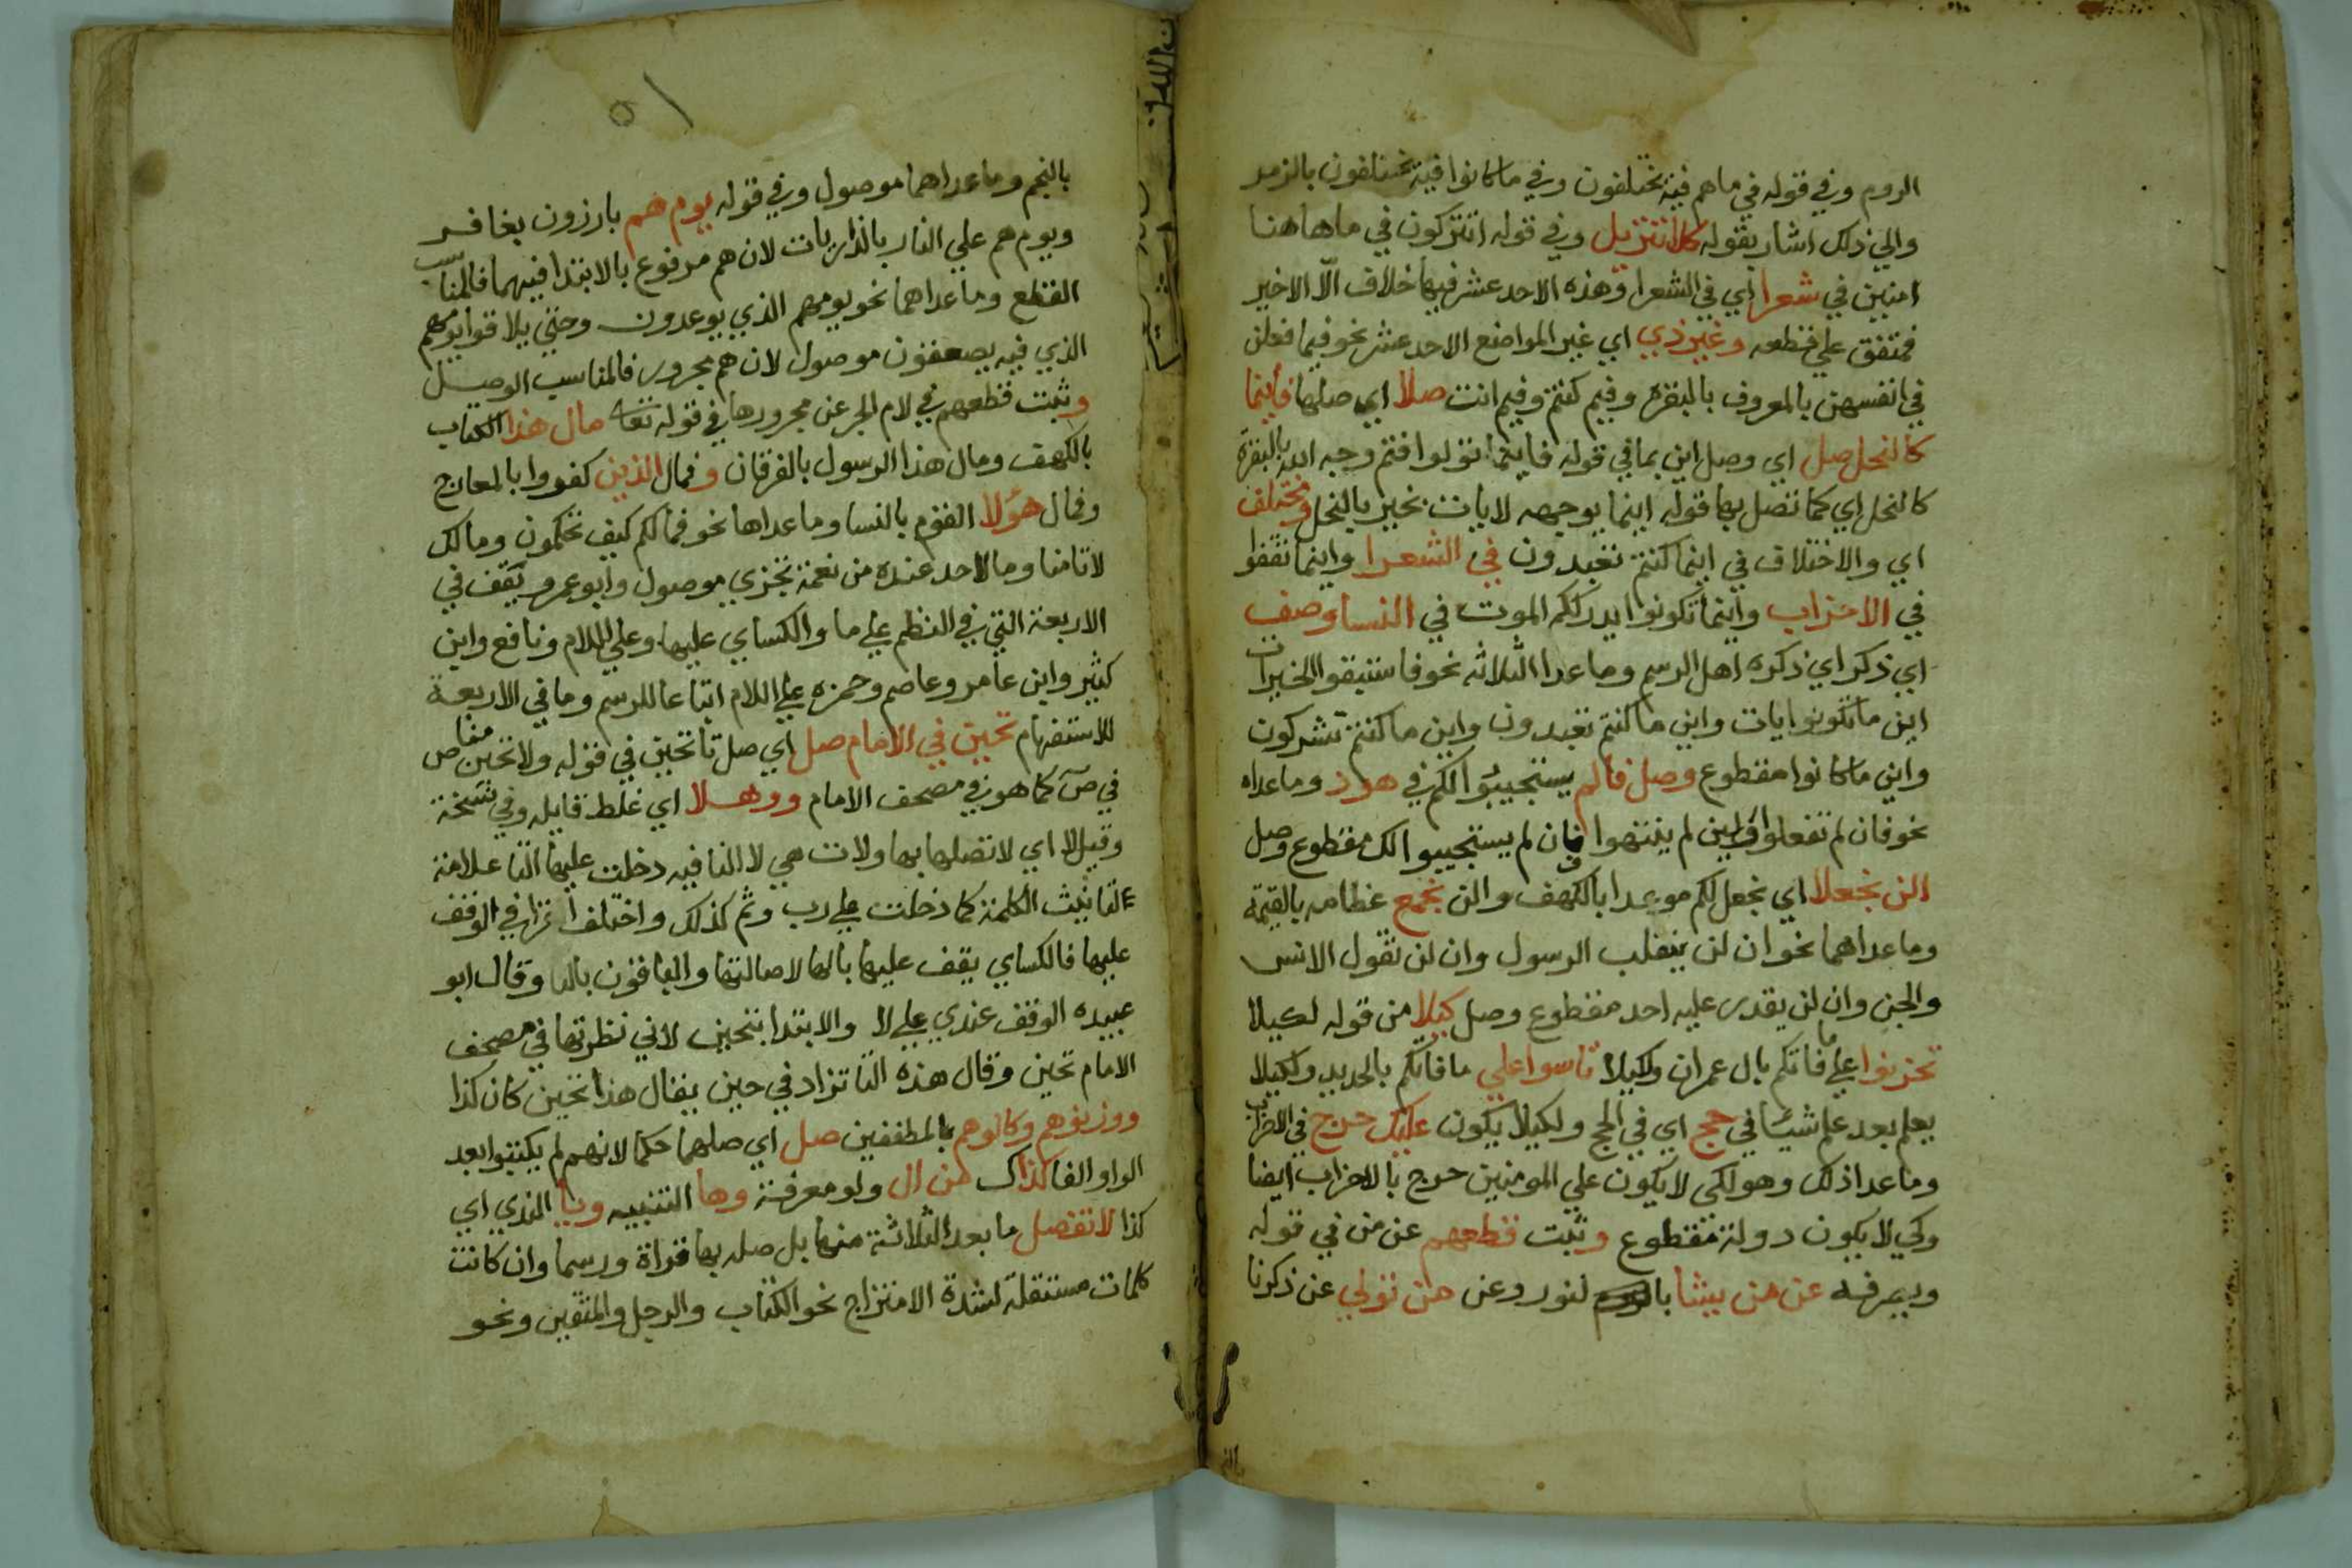 الروم وفي قوله في ما هم فيه يختلفون وفي ما كانوا فيه يختلفون بالزمر
والي ذلك اشار بقوله كلا تنزيل وفي قوله اتتركون في ما هاهنا
امنين في شعرا اي في الشعرا وهذه الاحد عشر فيها خلاف الّا الاخير
فمتفق علي قطعه وغير ذي اي غير المواضع الاحد عشر نحو فيما فعلن
في انفسهن بالمعروف بالبقرة وفيم كنتم وفيم انت صلا اي صلها فاينما
كالنحل صل اي وصل اين بما في قوله فاينما تولوا فثم وجه الله بالبقرة
كالنحل اي كما تصل بها قوله اينما يوجهه لايات بخير بالنحل ومختلف
اي والاختلاف في اينما كنتم تعبدون في الشعرا واينما ثقفوا
في الاحزاب واينما تكونوا يدرككم الموت في النسا وصف
اي ذكر اي ذكره اهل الرسم وما عدا الثلاثه نحو فاستبقوا الخيرات
اين ما تكونوا يات واين ما كنتم تعبدون واين ما كنتم تشركون
واين ما كانوا مقطوع وصل فالم يستجيبوا لكم في هود وما عداه
نحو فان لم تفعلوا ولين لم ينتهوا فان لم يستجيبوا لك مقطوع وصل
الن نجعلا اي نجعل لكم موعدا بالكهف والن نجمع عظامه بالقيمة
وما عداهما نحو ان لن ينقلب الرسول وان لن تقول الانس
والجن وان لن يقدر عليه احد مقطوع وصل كيلا من قوله لكيلا
تحزنوا علي ما فاتكم بال عمران ولكيلا تاسوا علي ما فاتكم بالحديد ولكيلا
يعلم بعد علم شيئا في حج اي في الحج ولكيلا يكون عليك حرج في الاحزاب
وما عدا ذلك وهو لكي لا يكون علي المومنين حرج بالاحزاب ايضا
وكي لا يكون دولة مقطوع وثبت قطعهم عن من في قوله
ويصرفه عن من يشا بالنور وعن من تولي عن ذكرنا
بالنجم وما عداهما موصول وفي قوله يوم هم بارزون بغافر
ويوم هم علي النار بالذاريات لان هم مرفوع بالابتدا فيهما فالمناسب
القطع وما عداهما نحو يومهم الذي يوعدون وحتي يلاقوا يومهم
الذي فيه يصعقون موصول لان هم مجرور فالمناسب الوصل
وثبت قطعهم في لام الجر عن مجرورها في قوله تعا مال هذا الكتاب
بالكهف ومال هذا الرسول بالفرقان وفمال الذين كفروا بالمعارج
وفمال هؤلا القوم بالنسا وما عداها نحو فمالكم كيف تحكمون ومالك
لا تامنا وما لاحد عنده من نعمة تجزي موصول وابو عمرو يقف في
الاربعة التي في النظم علي ما والكساي عليها وعلي اللام ونافع وابن
كثير وابن عامر وعاصم وحمزه علي اللام اتباعا للرسم وما في الاربعة
للاستفهام تحين في الامام صل اي صل تا تحين في قوله ولا تحين مناص
في صٓ كما هو في مصحف الامام ووهلا اي غلط قايله وفي نسخة
وقيل لا اي لا تصلها بها ولات هي لا النافيه دخلت عليها التا علامة
لتانيث الكلمة كما دخلت علي رب وثم كذلك واختلف القرا في الوقف
عليها فالكساي يقف عليها بالها لاصالتها والباقون بالتا وقال ابو
عبيده الوقف عندي علي لا والابتدا بتحين لاني نظرتها في مصحف
الامام تحين وقال هذه التا تزاد في حين يقال هذا تحين كان كذا
ووزنوهم وكالوهم بالمطففين صل اي صلهما حكما لانهم لم يكتبوا بعد
الواو الفا كذاك من ال ولو معرفة وها التنبيه ويا الندي اي
كذا لا تفصل ما بعد الثلاثة منها بل صله بها قراة ورسما وان كانت
كلمات مستقلة لشدة الامتزاج نحو الكتاب والرجل والمتقين ونحو